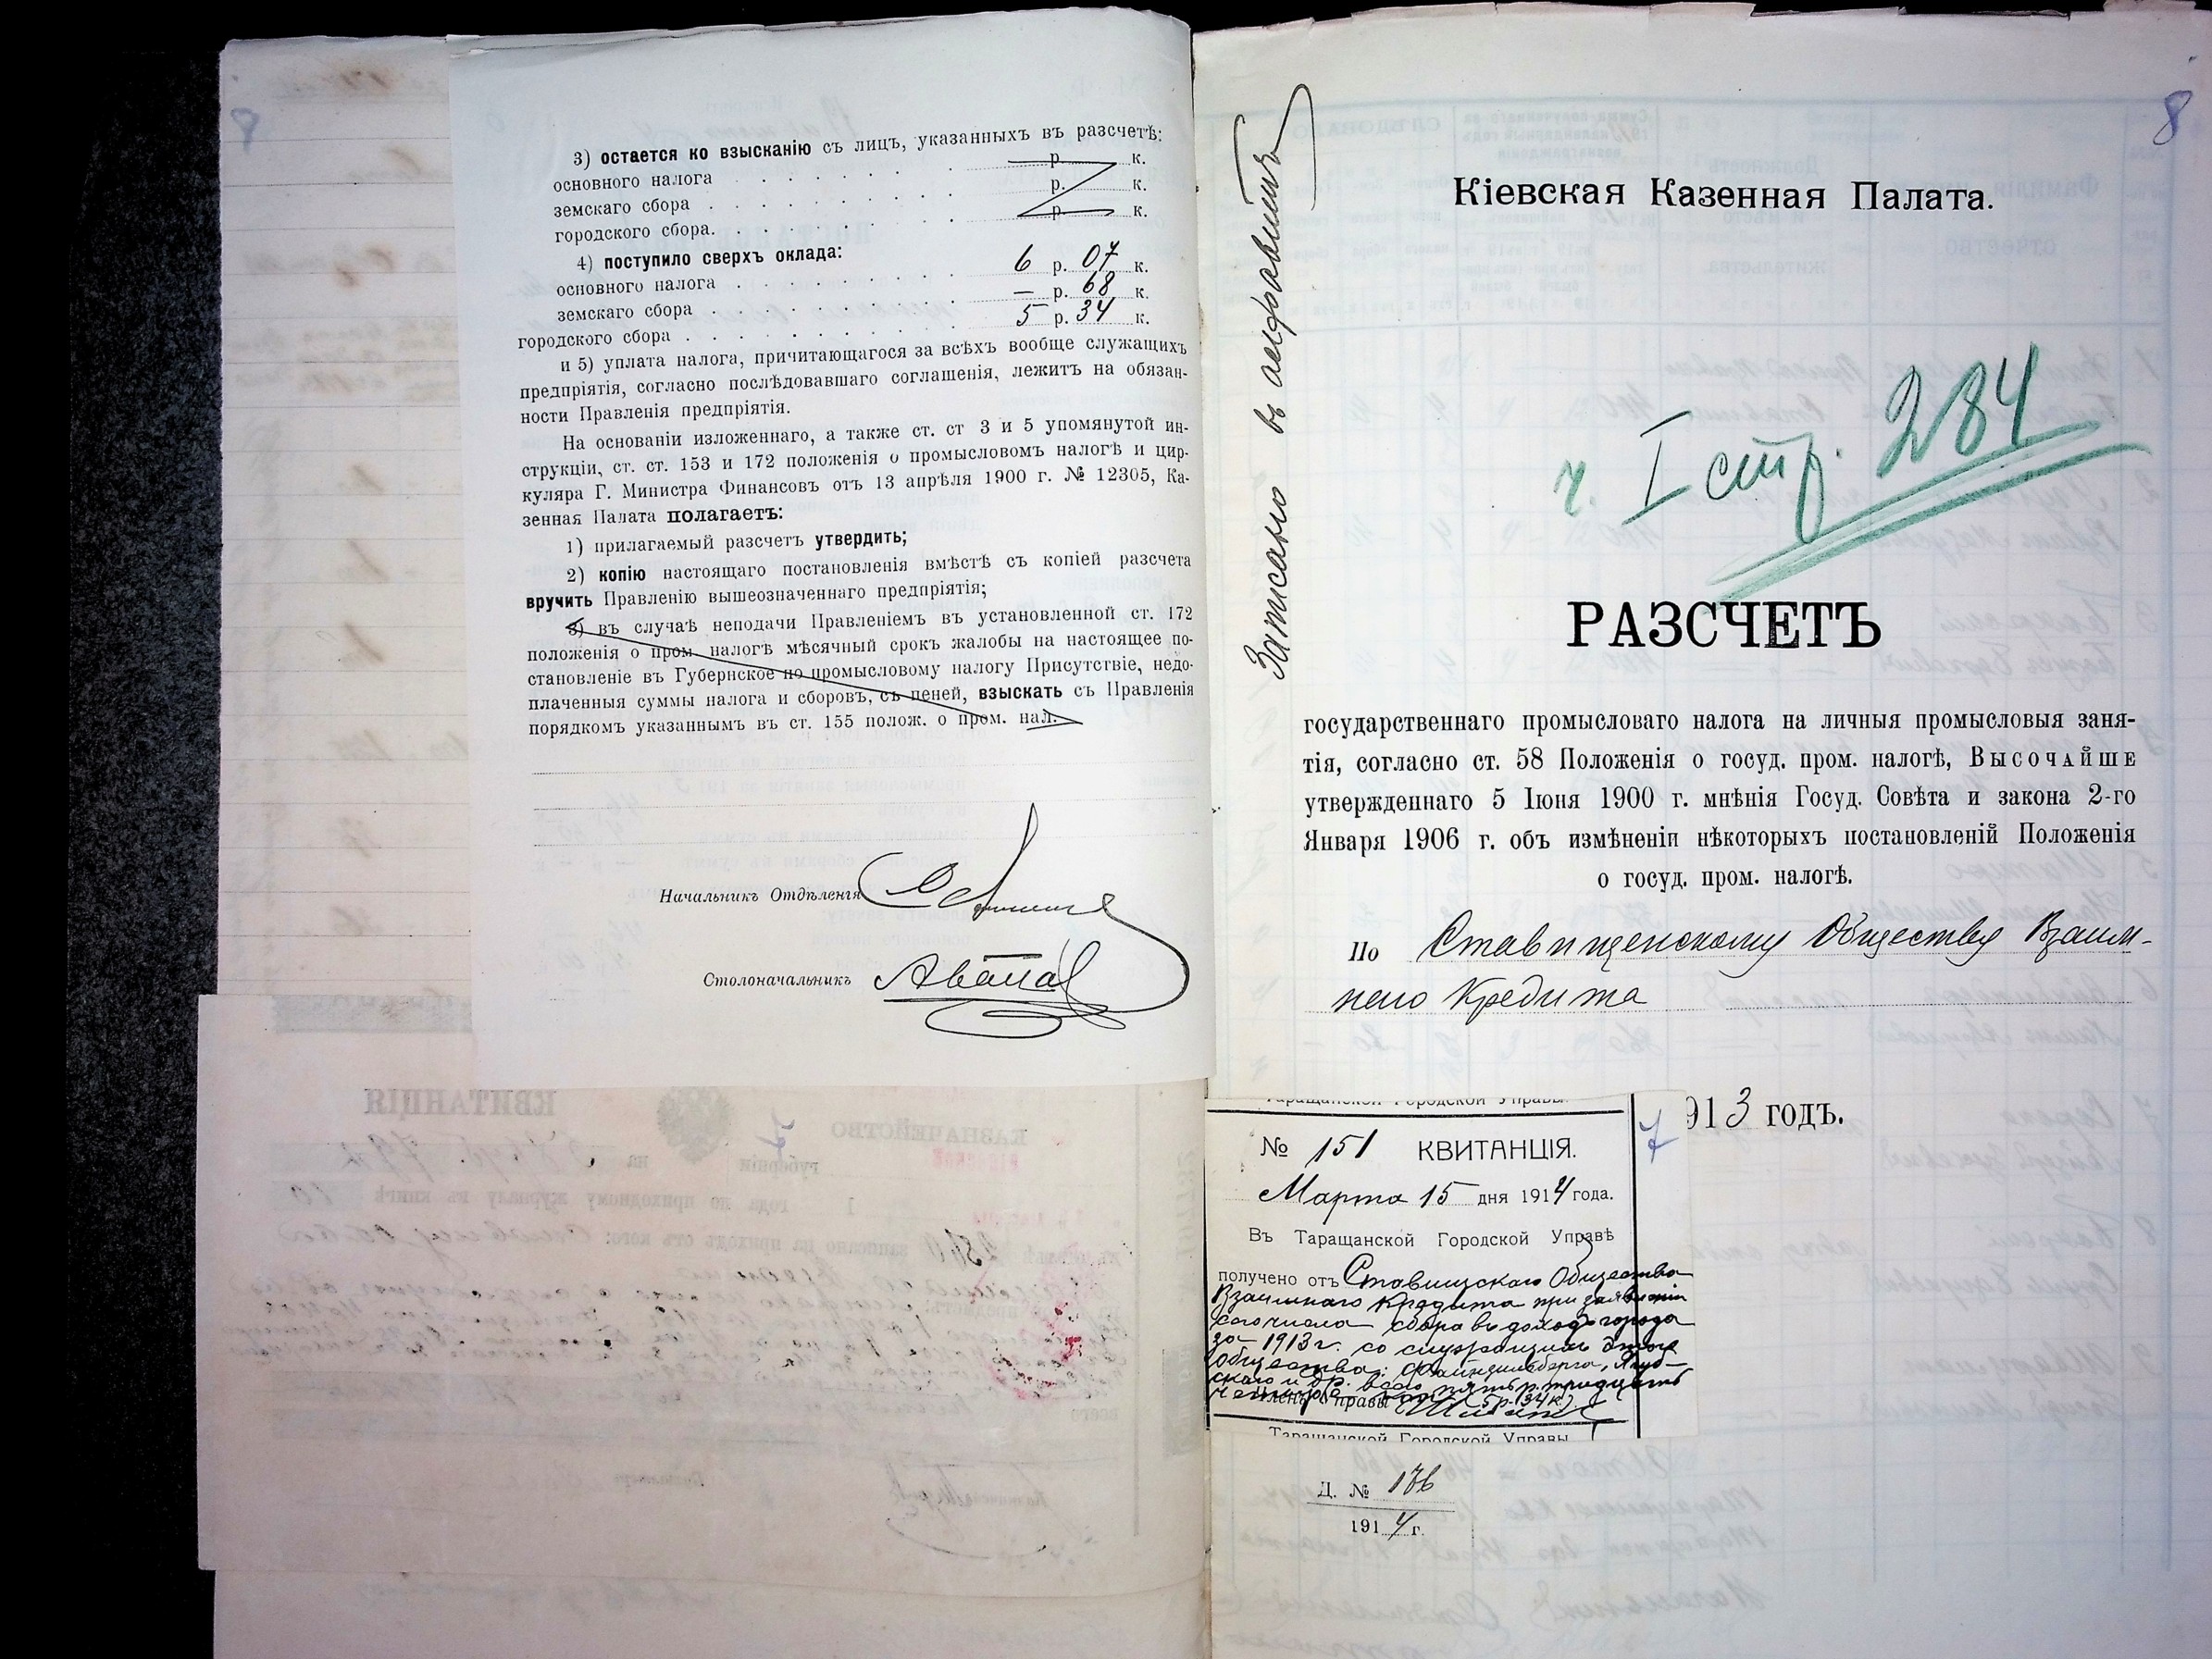 3) остается ко взысканію съ лицъ, указанныхъ въ разсчетѣ:
основного налога . . . . . . . р. к.
земскаго сбора . . . . . . . . . р. к.
городского сбора. . . . . . . . р. к.
4) поступило сверхъ оклада:
основного налога . . . . . . . 6 р. 07 к.
земскаго сбора . . . . . . . . — р. 68 к.
городского сбора . . . . . . . . 5 р. 34 к.
и 5) уплата налога, причитающагося за всѣхъ вообще служащихъ
предпріятія, согласно послѣдовавшаго соглашенія, лежитъ на обязан-
ности Правленія предпріятія.
На основаніи изложеннаго, а также ст. ст 3 и 5 упомянутой ин-
струкціи, ст. ст. 153 и 172 положенія о промысловомъ налогѣ и цир-
куляра Г. Министра Финансовъ отъ 13 апрѣля 1900 г. № 12305, Ка-
зенная Палата полагаетъ:
1) прилагаемый разсчетъ утвердить;
2) копію настоящаго постановленія вмѣстѣ съ копіей разсчета
вручить Правленію вышеозначеннаго предпріятія;
3) въ случаѣ неподачи Правленіемъ въ установленной ст. 172
положенія о пром. налогѣ мѣсячный срокъ жалобы на настоящее по-
становленіе въ Губернское по промысловому налогу Присутствіе, недо-
плаченныя суммы налога и сборовъ, съ пеней, взыскать съ Правленія
порядкомъ указаннымъ въ ст. 155 полож. о пром. нал.
Начальникъ Отдѣленія
Столоначальникъ
8
Записано въ алфавитъ
Кіевская Казенная Палата.
ч. I стр. 284
РАЗСЧЕТЪ
государственнаго промысловаго налога на личныя промысловыя заня-
тія, согласно ст. 58 Положенія о госуд. пром. налогѣ, Высочайше
утвержденнаго 5 Іюня 1900 г. мнѣнія Госуд. Совѣта и закона 2-го
Января 1906 г. объ измѣненіи нѣкоторыхъ постановленій Положенія
о госуд. пром. налогѣ.
По Ставищенскому Обществу Взаим-
наго Кредита
913 годъ.
Таращанской Городской Управы
7
№ 151 КВИТАНЦІЯ.
Марта 15 дня 1914 года.
Въ Таращанской Городской Управѣ
получено отъ Ставищскаго Общества
Взаимнаго Кредита при заявленіи
сего числа сбора въ доходъ города
за 1913 г. со служащихъ этого
Общества: Файнзильберга,
и др. всего пять р. тридцать
четыре коп. (5 р. 34 к.)
Членъ Управы
Таращанской Городской Управы
Д. № 176
1914 г.